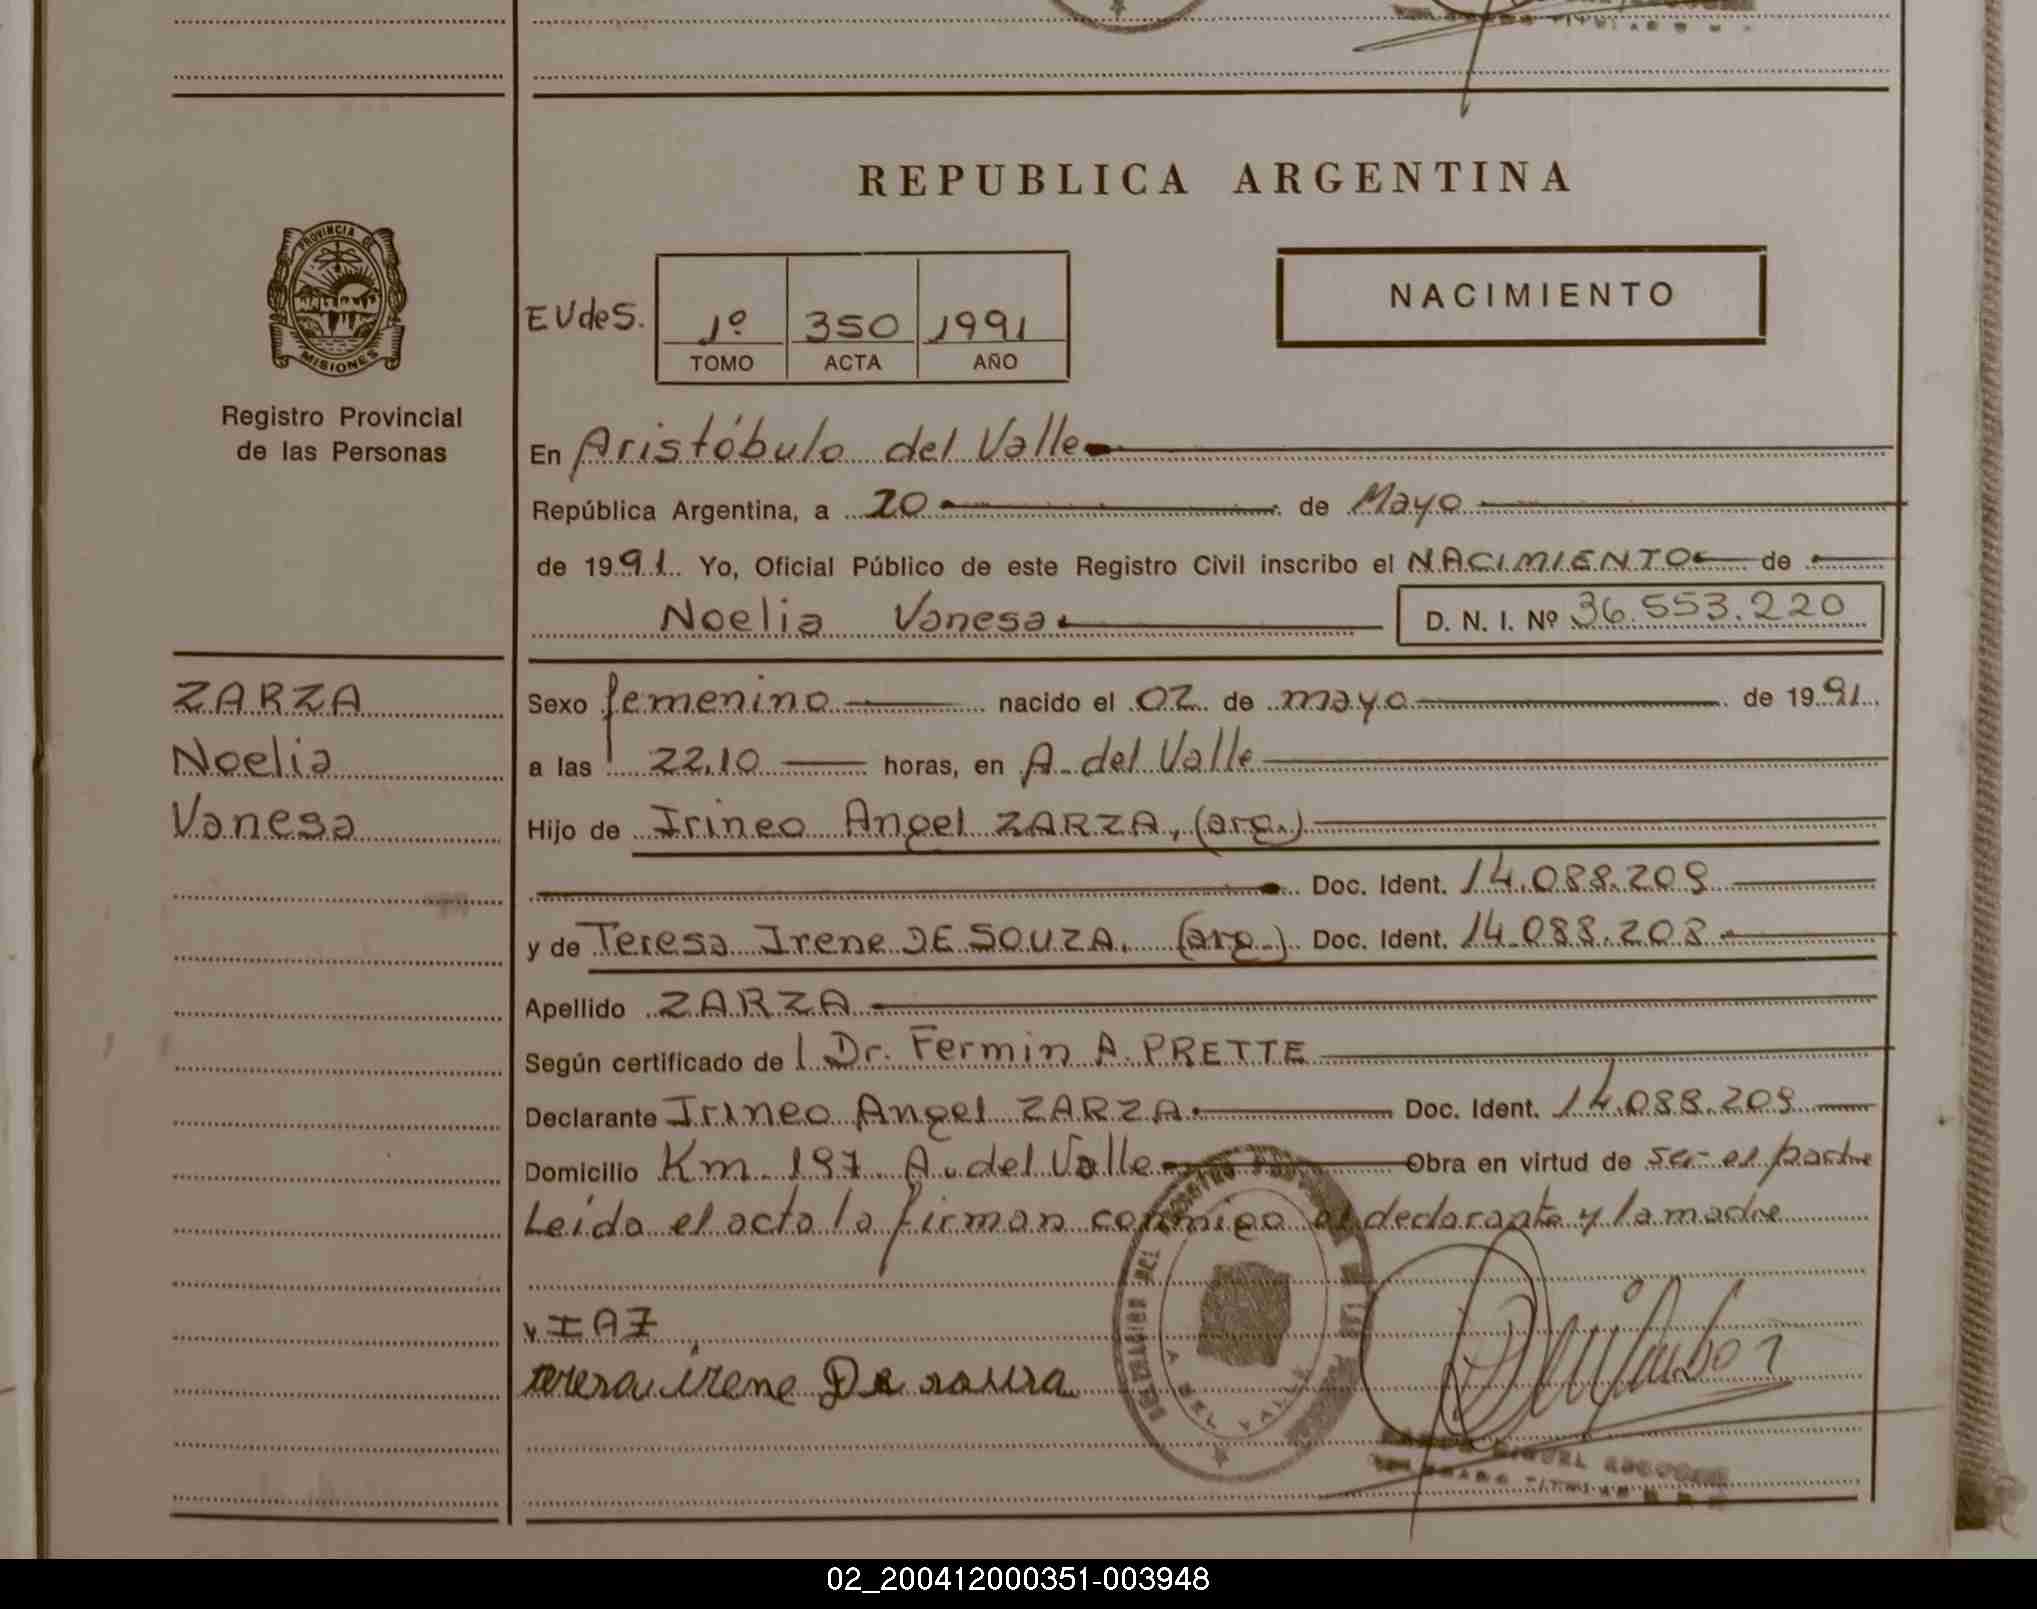 REPUBLICA ARGENTINA
PROVINCIA DE
MISIONES
Registro Provincial
de las Personas
NACIMIENTO
EVdeS. 1º 350 1991
TOMO ACTA AÑO
En Aristóbulo del Valle
República Argentina, a 20 de Mayo
de 1991. Yo, Oficial Público de este Registro Civil inscribo el NACIMIENTO de
Noelia Vanesa D. N. I. Nº 36.553.220
ZARZA
Noelia
Vanesa
Sexo femenino nacido el 02 de mayo de 1991
a las 22,10 horas, en A. del Valle
Hijo de Irineo Angel ZARZA, (arg.)
Doc. Ident. 14.088.209
y de Teresa Irene DE SOUZA. (arg.) Doc. Ident. 14.088.208
Apellido ZARZA
Según certificado de l Dr. Fermin A. PRETTE
Declarante Irineo Angel ZARZA Doc. Ident. 14.088.209
Domicilio Km. 197 A. del Valle Obra en virtud de ser el padre
Leída el acta la firman conmigo el declarante y la madre
IAZ
teresa irene De souza
02_200412000351-003948